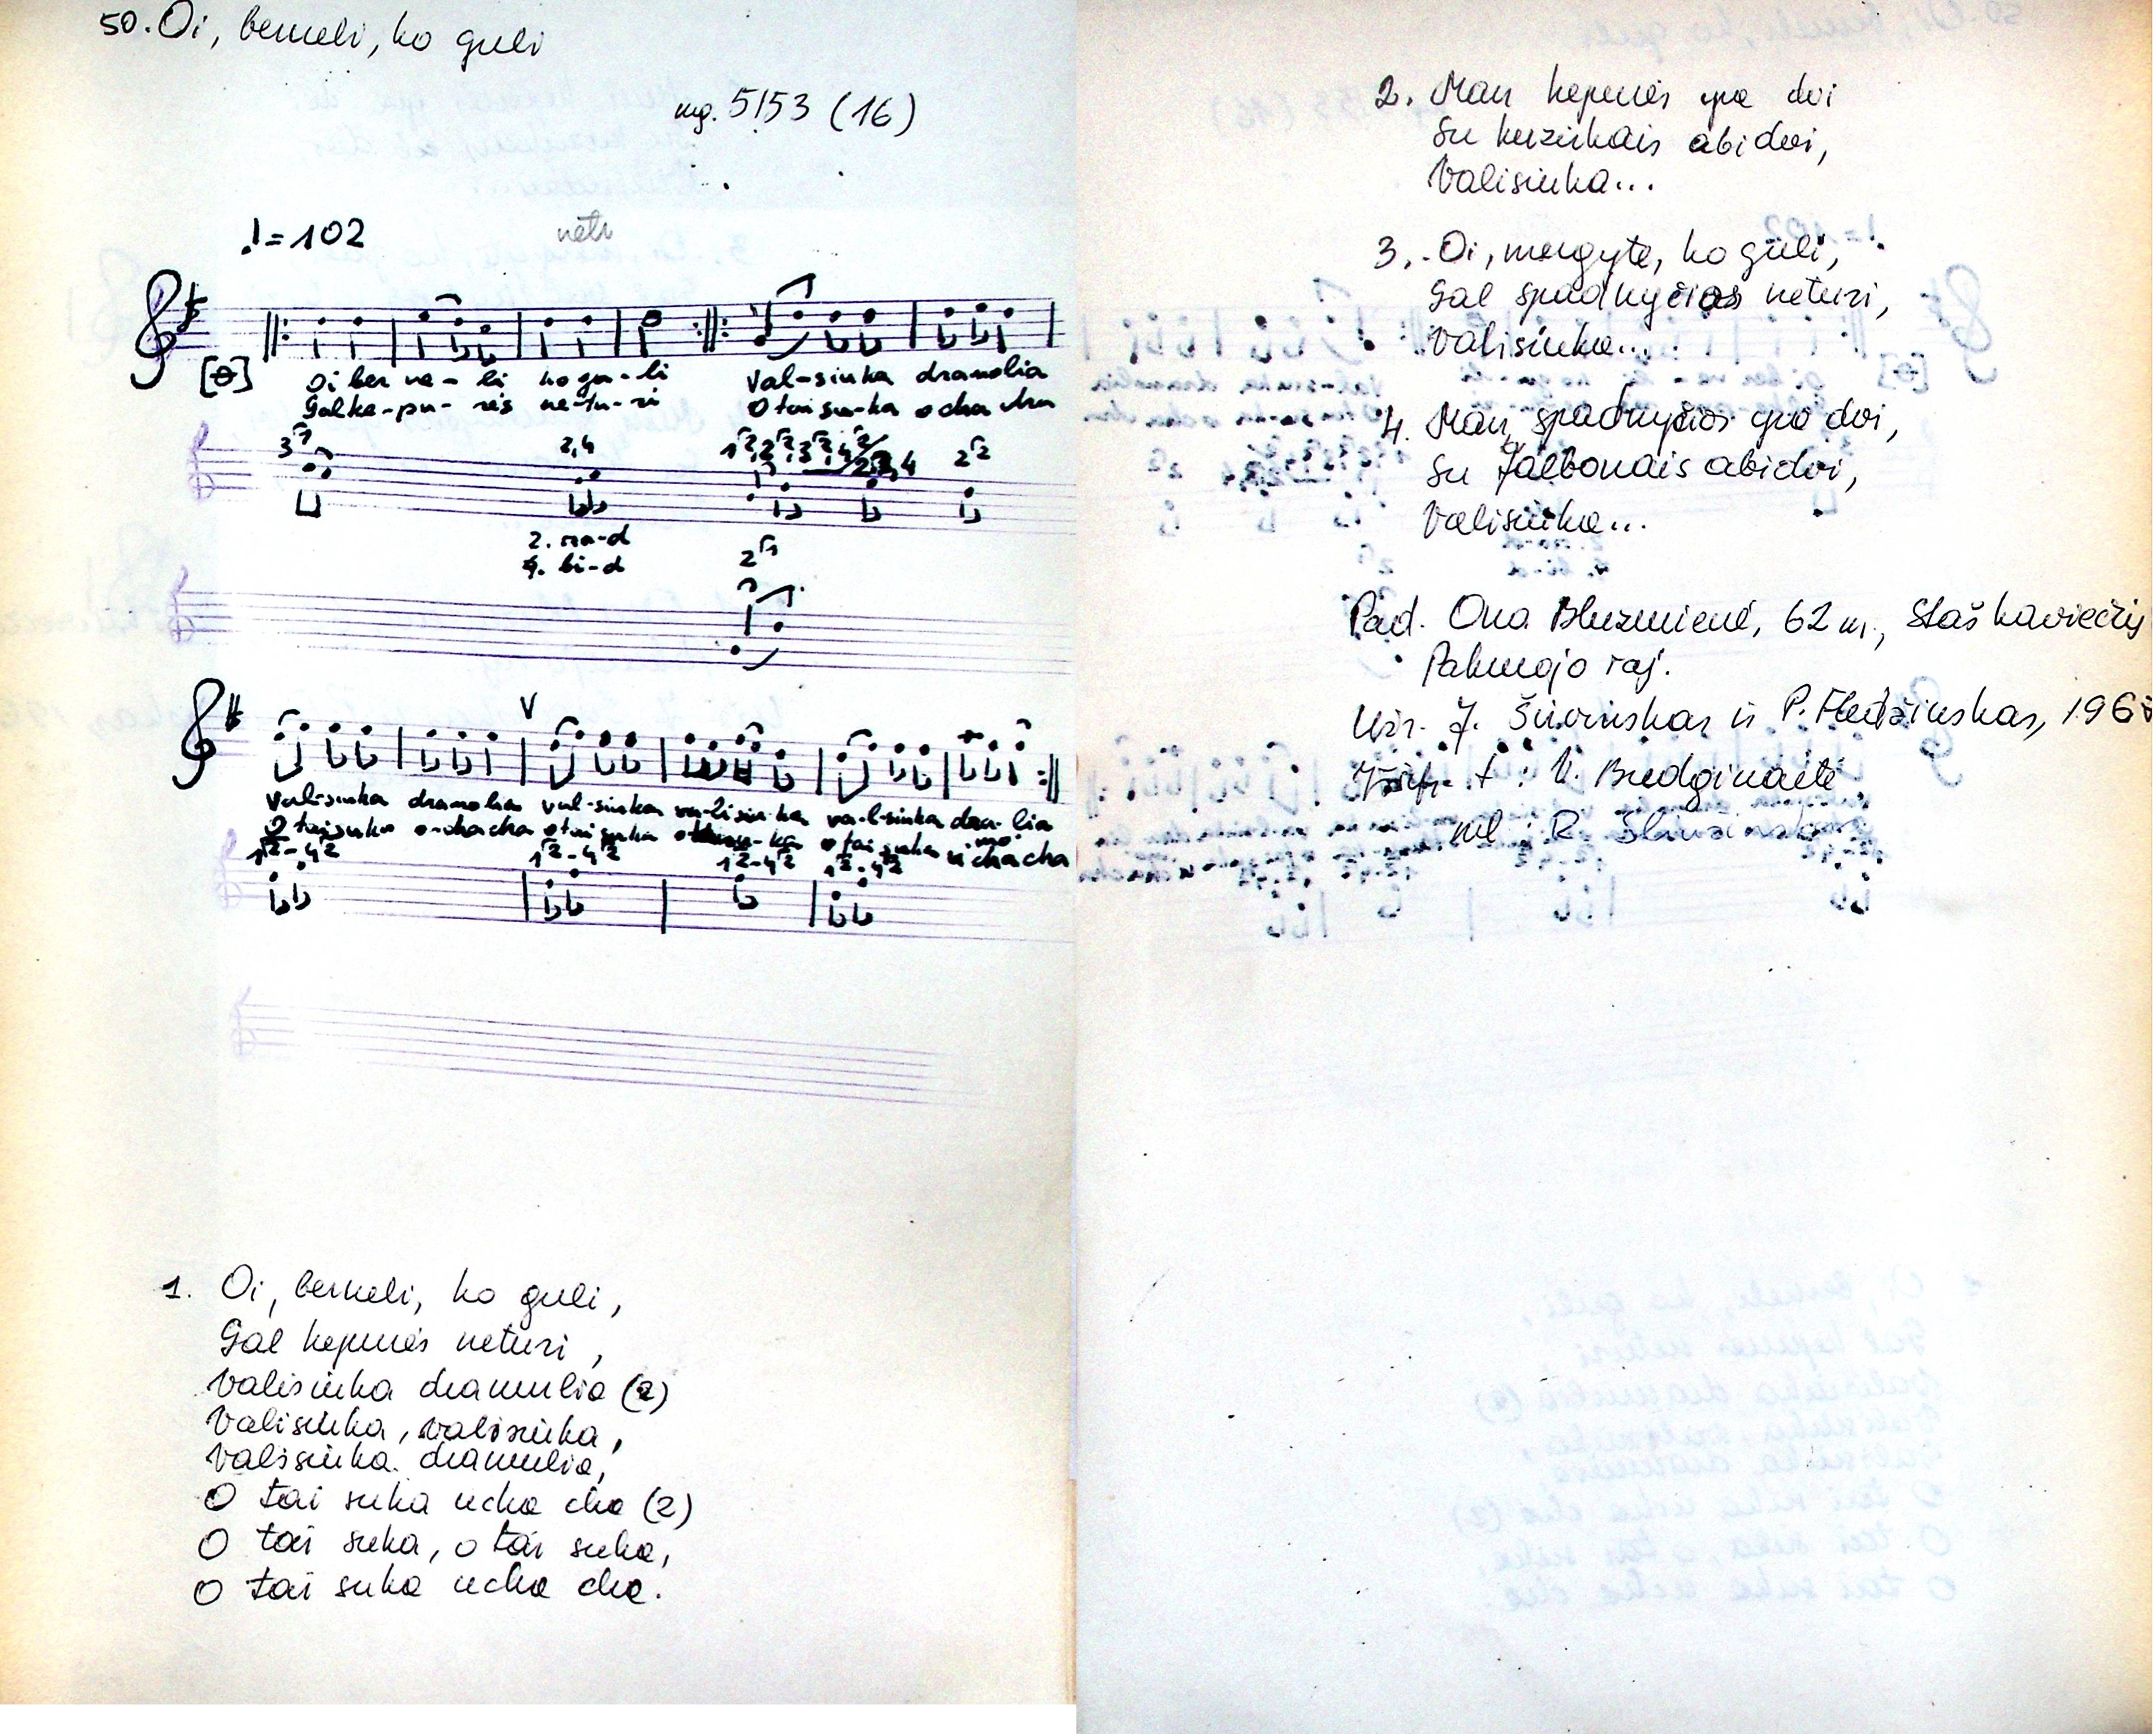 50. Oi, berneli, ko guli
mg. 5153 (16)
♩=102
Oi ber ne - li ko gu - li Val-siuka dramolia
Gal ke - pu - rės ne-tu-ri O tai su-ka o cha cha
2,4
2. na-d
4. bi-d
Valisiuka dramolia val-siuka va-li siu-ka va-l-siuka dra-lia
O tai suka o-cha cha o tai suka o tai suka u cha cha
1. Oi, berneli, ko guli,
Gal kepurės neturi,
Valisiuka dramulia (2)
Valisiuka, valisiuka,
Valisiuka dramulia,
O tai suka ucha cha (2)
O tai suka, o tai suka,
O tai suka ucha cha.
2. Man kepurės po dvi
Su kuzirkais abidvi,
Valisiuka...
3. Oi, mergyte, ko guli,
Gal spadnyčios neturi,
Valisiuka...
4. Man spadnyčios po dvi,
Su falbonais abidvi,
Valisiuka...
Pad. Ona Bluzmienė, 62 m., Staškaviečių
Pakruojo raj.
Užr. J. Šivinskas ir P. 196
t: V. Bredginaitė
mel: R.